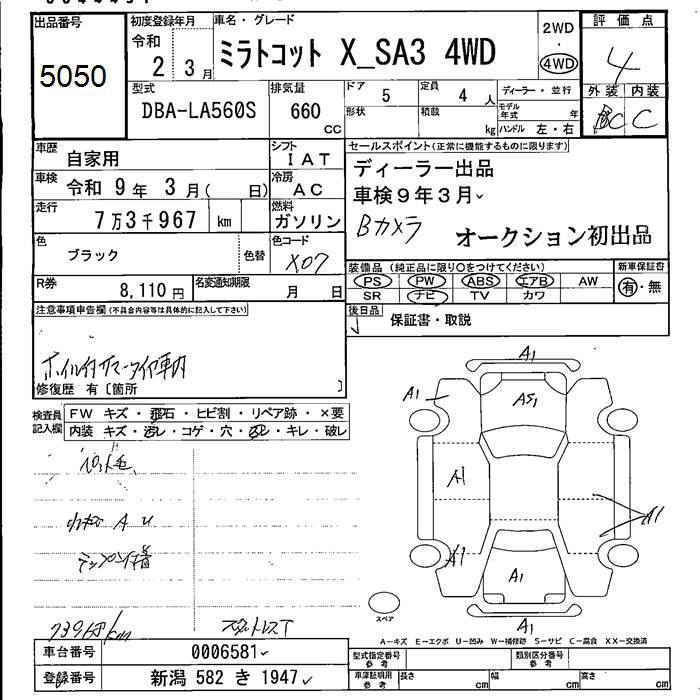 出品番号
5050
初度登録年月
令和
2 3月
車名・グレード
ミラトコット X_SA3 4WD
2WD
・
4WD
評価点
4
外装 内装
C C
型式
DBA-LA560S
排気量
660
CC
ドア
5
定員
4人
ディーラー・並行
形状
積載
kg
モデル年式 年
ハンドル 左・右
車歴
自家用
シフト
IAT
車検
令和 9年 3月( 日)
冷房
AC
走行
7万3千967 km
燃料
ガソリン
色
ブラック
色替
色コード
X07
R券
8,110円
名変通知期限
月 日
セールスポイント(正常に機能するものに限ります)
ディーラー出品
車検9年3月
Bカメラ
オークション初出品
装備品(純正品に限り○をつけてください)
新車保証書
PS PW ABS エアB AW
有・無
SR ナビ TV カワ
後日品
保証書・取説
注意事項申告欄(不具合内容等は具体的に記入して下さい)
ホイル付サマータイヤ車内
修復歴 有〔箇所 〕
検査員
記入欄
FW キズ・飛石・ヒビ割・リペア跡・×要
内装 キズ・汚レ・コゲ・穴・凹レ・キレ・破レ
小キズ A U
73968km
スタットレスT
A1
A1
AS1
A1
A1
A1
A1
A1
スペア
A-キズ E-エクボ U-凹み W-補修跡 S-サビ C-腐食 XX-交換済
車台番号
0006581
登録番号
新潟 582 き 1947
型式指定番号
参考
類別区分番号
参考
車庫証明用
参考
長さ cm 幅 cm 高さ cm